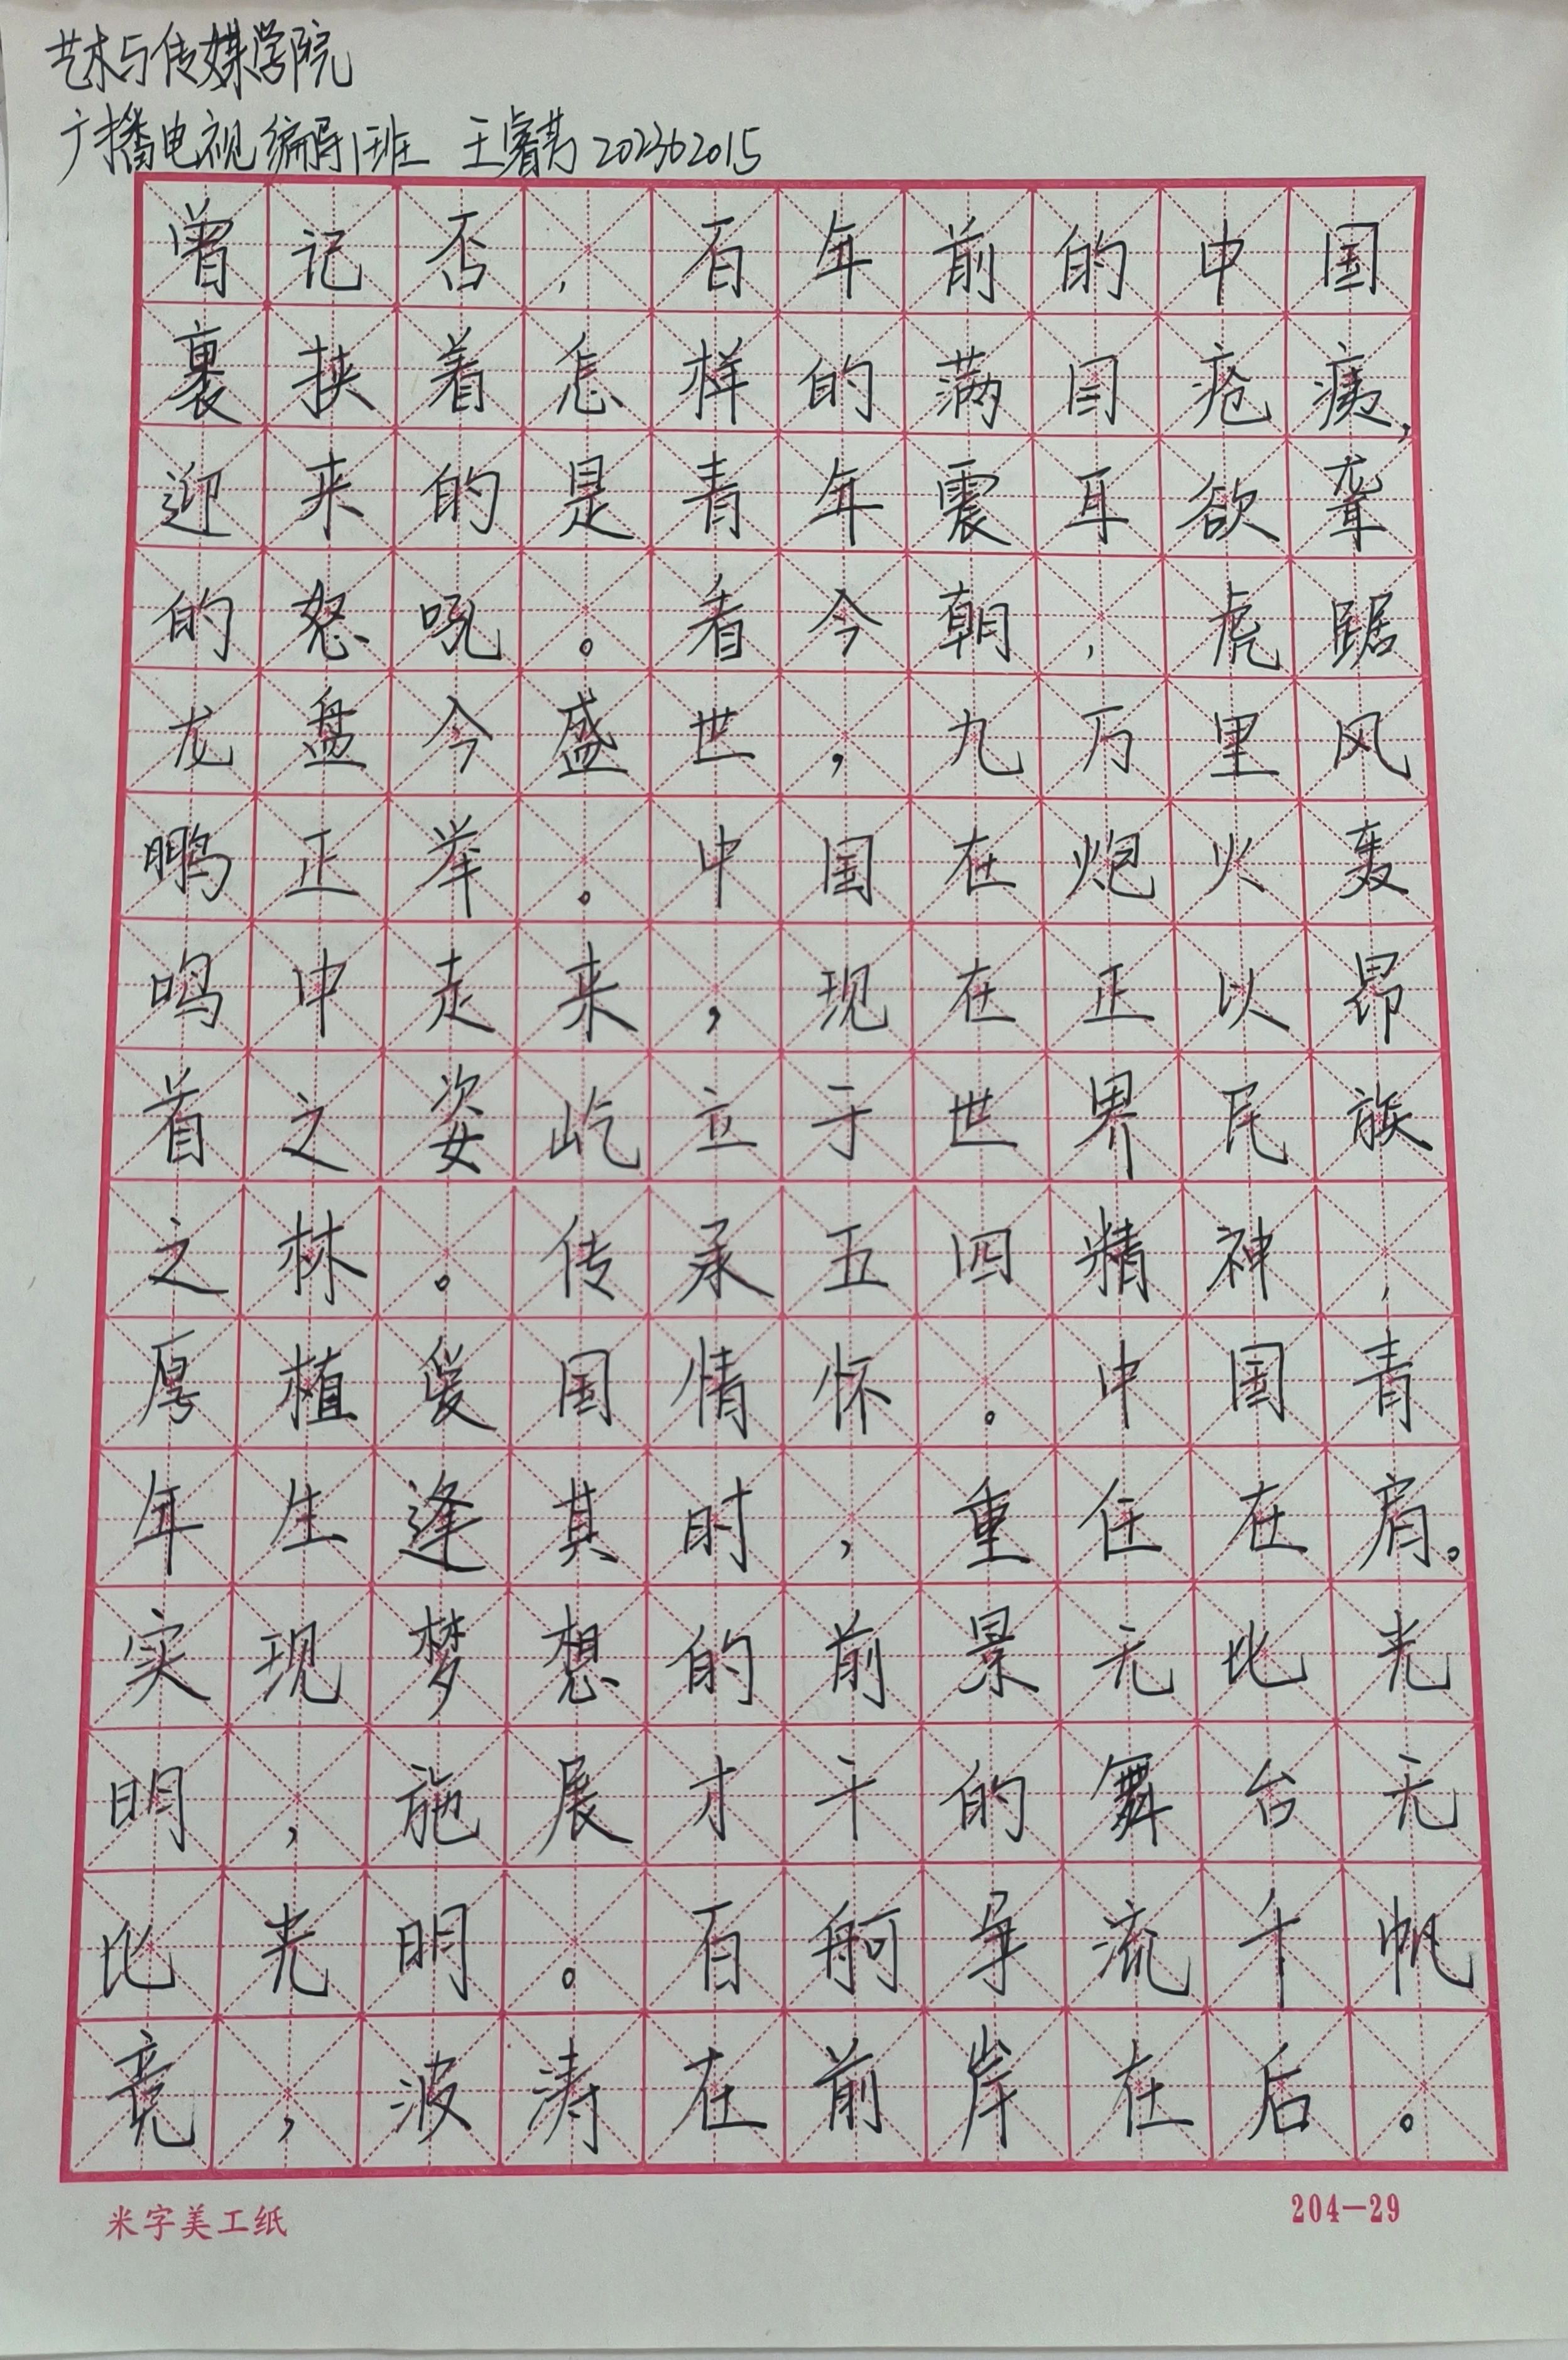 艺术与传媒学院
广播电视编导1班 王睿艺 202362015
曾记否，百年前的中国
裹挟着怎样的满目疮痍，
迎来的是青年震耳欲聋
的怒吼。看今朝，虎踞
龙盘今盛世，九万里风
鹏正举。中国在炮火轰
鸣中走来，现在正以昂
首之姿屹立于世界民族
之林。传承五四精神，
厚植爱国情怀。中国青
年生逢其时，重任在肩。
实现梦想的前景无比光
明，施展才干的舞台无
比光明。百舸争流千帆
竞，波涛在前岸在后。
米字美工纸
204—29